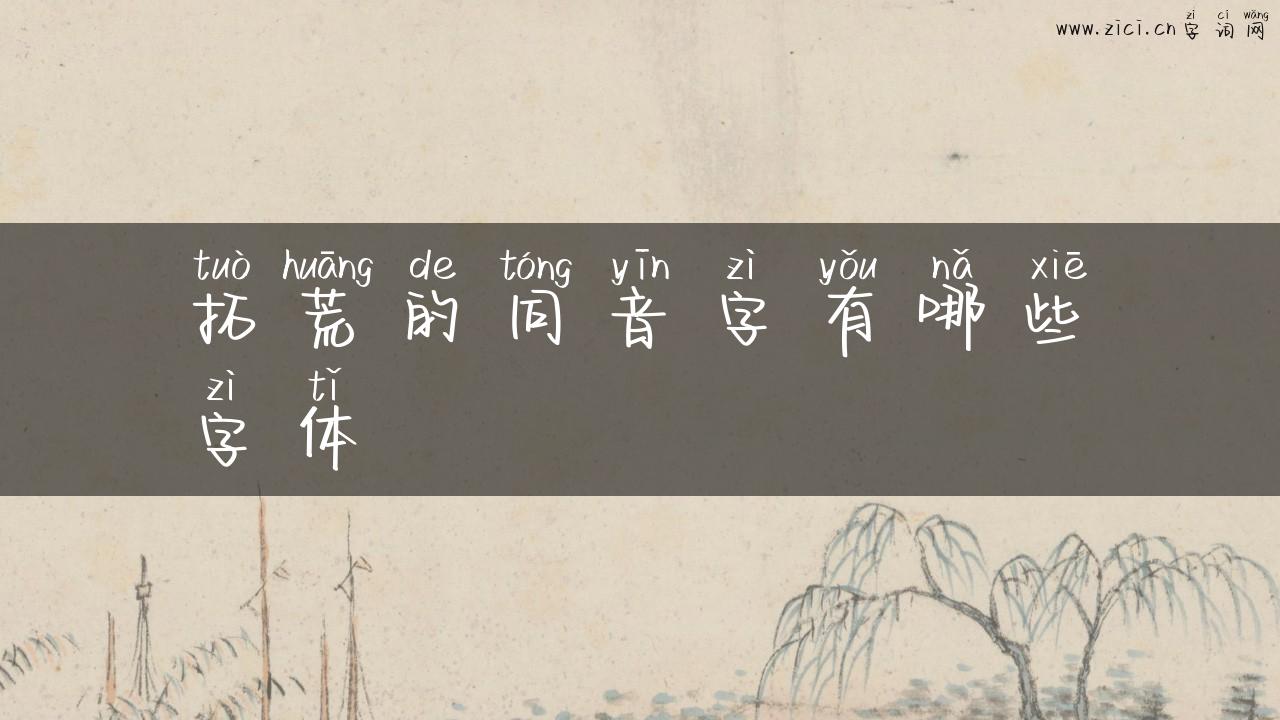 zì cí wǎng
www.zici.cn 字词网
tuò huāng de tóng yīn zì yǒu nǎ xiē
拓荒的同音字有哪些
zì tǐ
字体